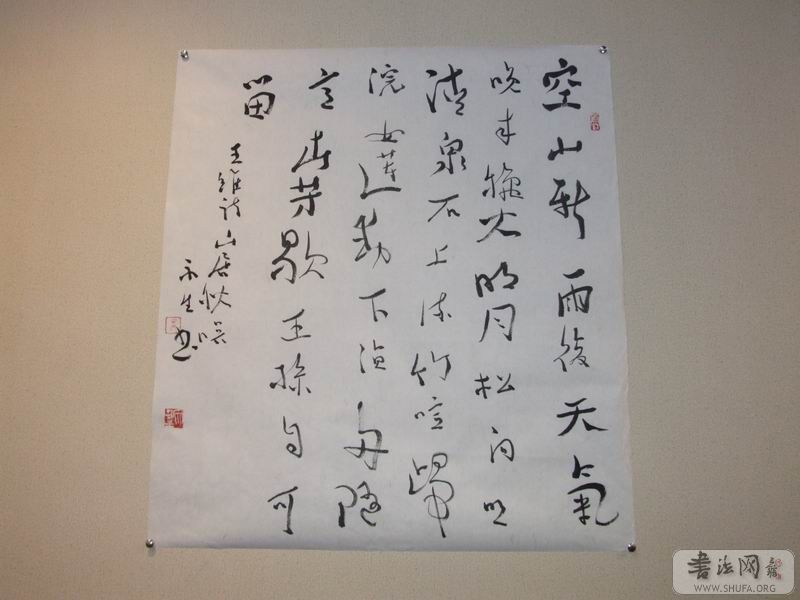 空山新雨後天氣
晚来龝明月松间照
清泉石上流竹喧歸
浣女蓮動下漁舟隨
意春芳歇王孫自可
留
王維詩山居秋暝
生书
書法网
WWW.SHUFA.ORG